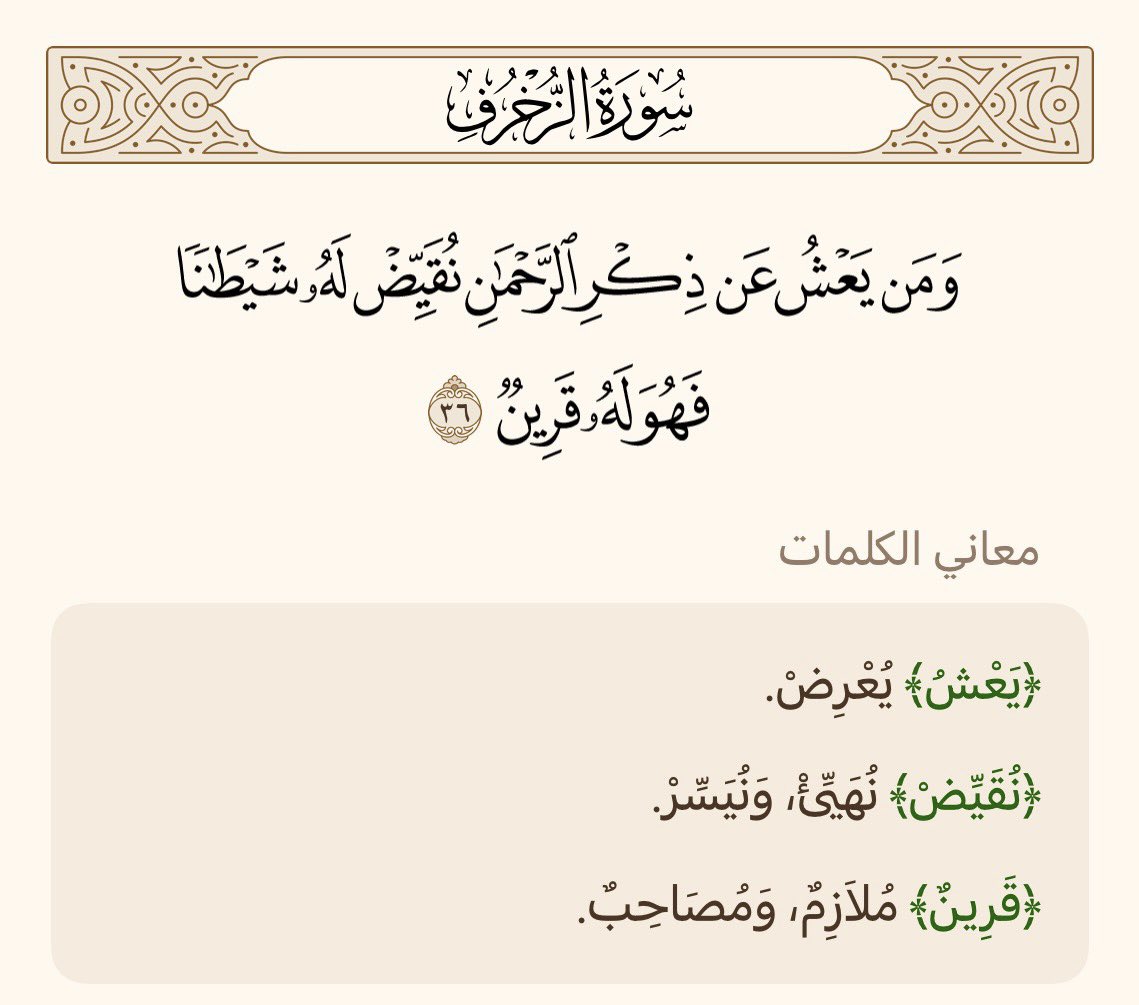 سُورَةُ الزُّخْرُفِ
وَمَن يَعْشُ عَن ذِكْرِ ٱلرَّحْمَٰنِ نُقَيِّضْ لَهُۥ شَيْطَٰنًا
فَهُوَ لَهُۥ قَرِينٌ ٣٦
معاني الكلمات
﴿يَعْشُ﴾ يُعْرِضْ.
﴿نُقَيِّضْ﴾ نُهَيِّئْ، وَنُيَسِّرْ.
﴿قَرِينٌ﴾ مُلاَزِمٌ، وَمُصَاحِبٌ.